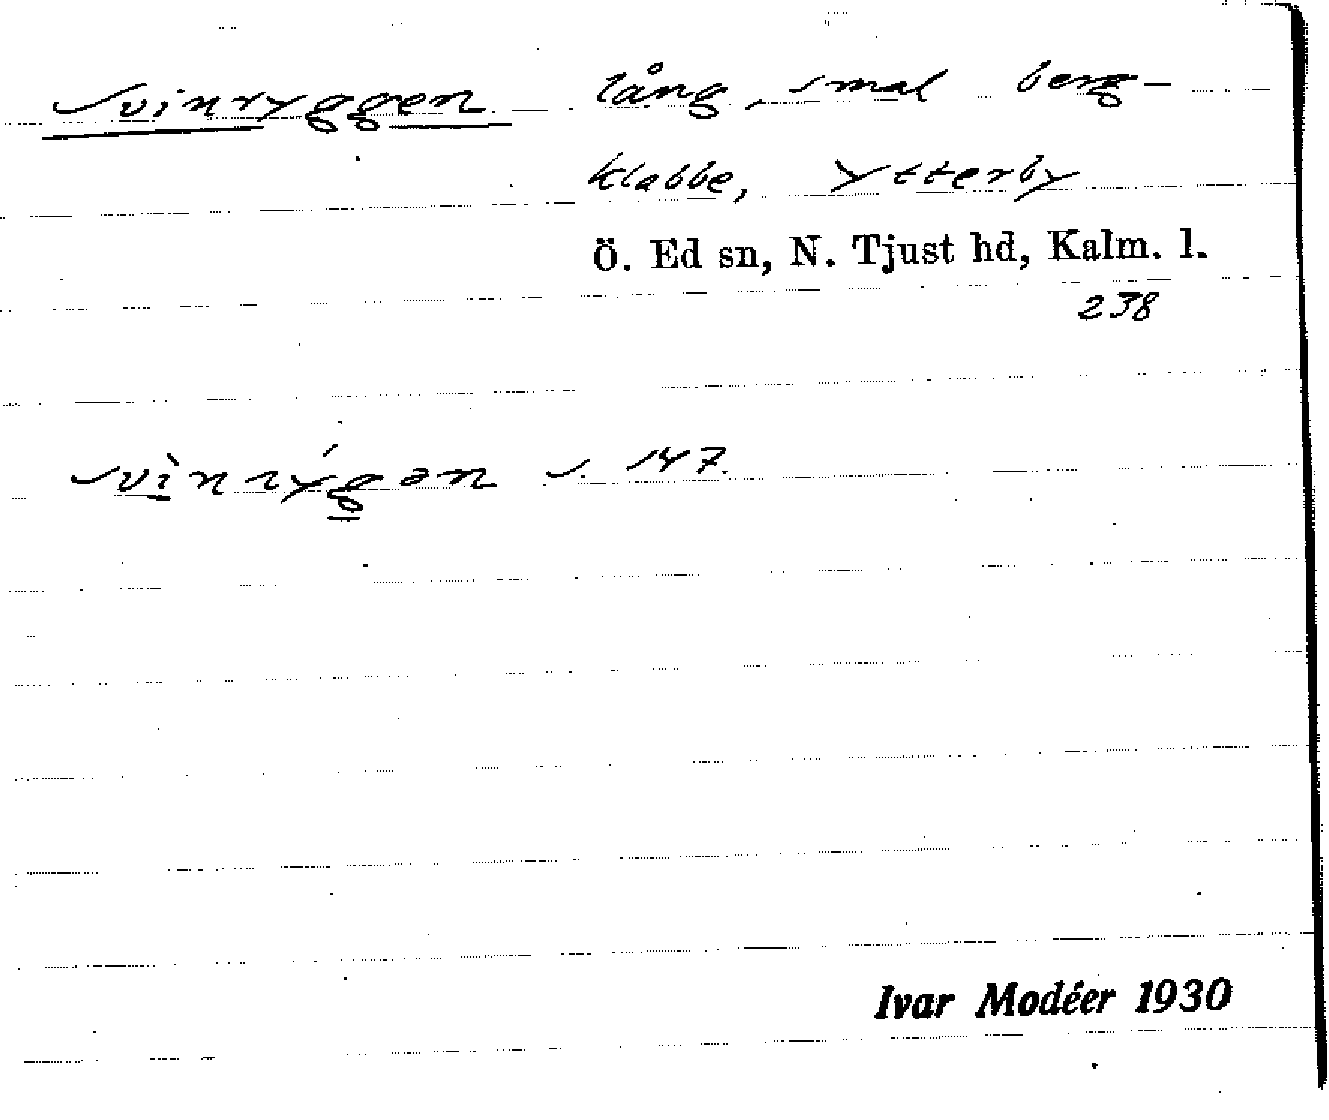 Svinryggen lång, smal berg-
klabbe, Ytterby
Ö. Ed sn, N. Tjust hd, Kalm. l.
238
svìnrýgən s. 147
Ivar Modéer 1930